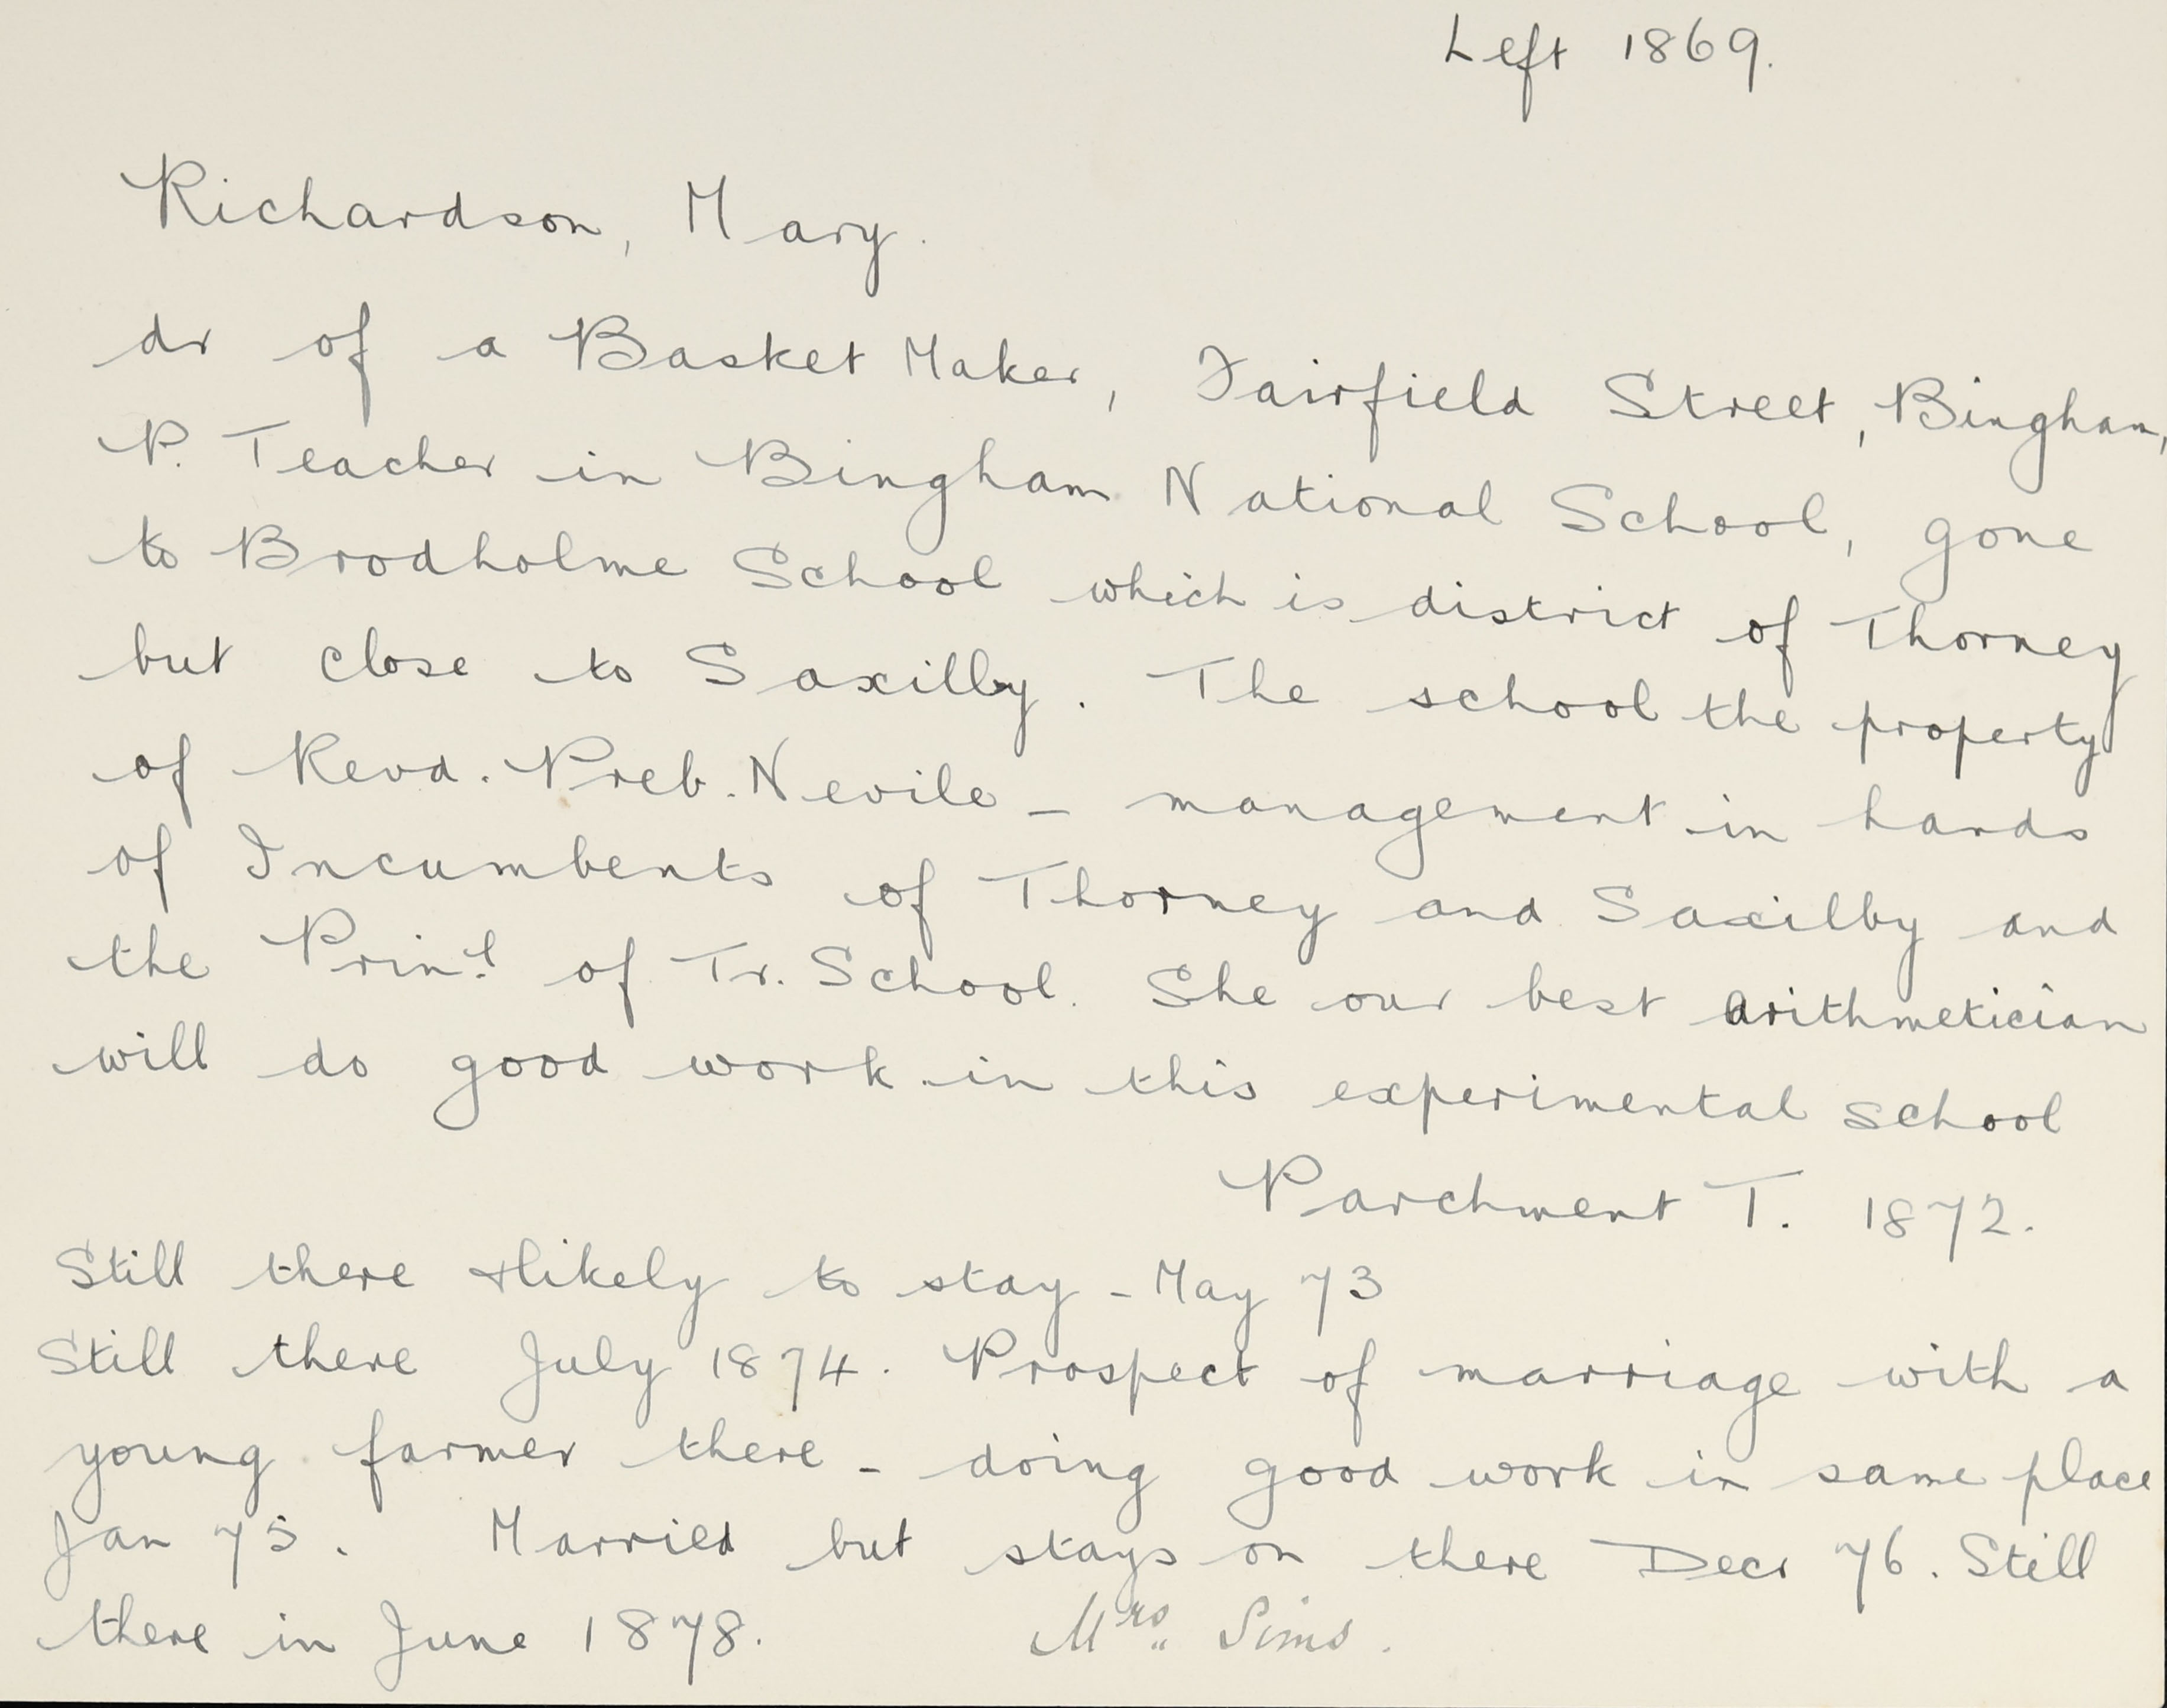 Left 1869.
Richardson, Mary.
dr of a Basket Maker, Fairfield Street, Bingham,
P. Teacher in Bingham National School, gone
to Brodholme School which is district of Thorney
but close to Saxilby. The school the property
of Revd. Preb. Nevile - management in hands
of Incumbents of Thorney and Saxilby and
the Prin.l of Tr. School. She our best arithmetician
will do good work in this experimental school
Parchment T. 1872.
Still there & likely to stay - May 73
Still there July 1874. Prospect of marriage with a
young farmer there - doing good work in same place
Jan 75. Married but stays on there Decr 76. Still
there in June 1878. Mrs. Sims.